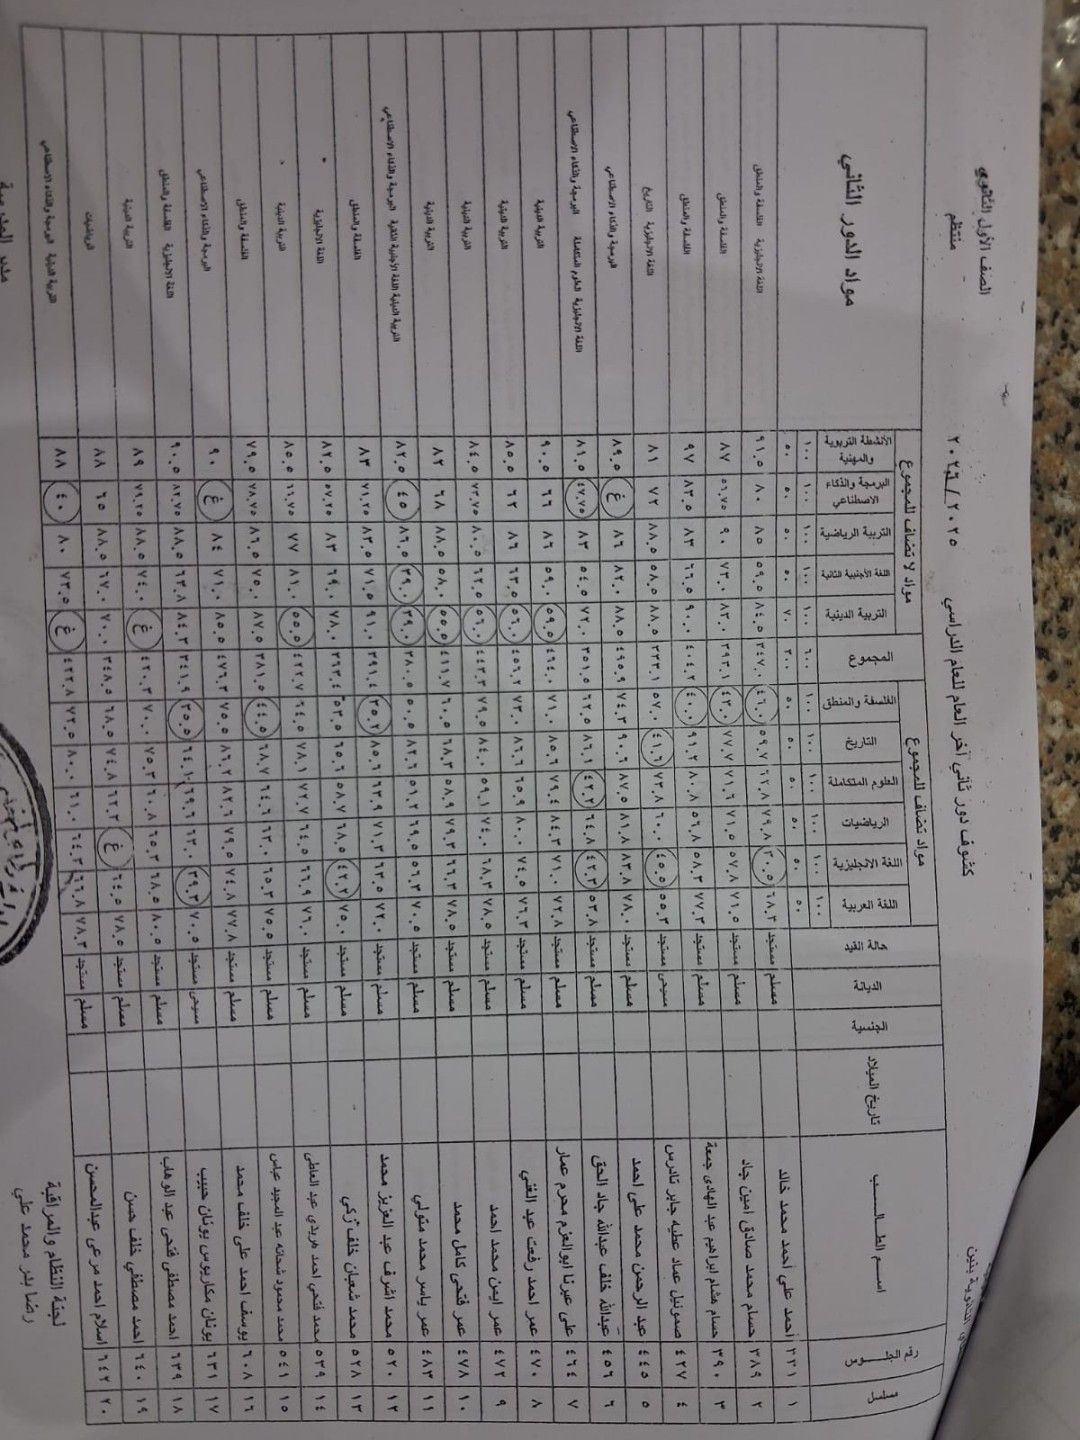 الصف الأول الثانوي
منتظم
كشوف دور ثاني آخر العام للعام الدراسي ٢٠٢٥ / ٢٠٢٦
الثانوية بنين
مسلسل
رقم الجلوس
اسم الطالب
تاريخ الميلاد
الجنسية
الديانة
حالة القيد
مواد تضاف للمجموع
اللغة العربية
اللغة الانجليزية
الرياضيات
العلوم المتكاملة
التاريخ
الفلسفة والمنطق
المجموع
مواد لا تضاف للمجموع
التربية الدينية
اللغة الأجنبية الثانية
التربية الرياضية
البرمجة والذكاء الاصطناعي
الأنشطة التربوية والمهنية
مواد الدور الثاني
١٠٠ ١٠٠ ١٠٠ ١٠٠ ١٠٠ ١٠٠ ٦٠٠ ١٠٠ ١٠٠ ١٠٠ ١٠٠ ١٠٠
٥٠ ٥٠ ٥٠ ٥٠ ٥٠ ٥٠ ٣٠٠ ٧٠ ٥٠ ٥٠ ٥٠ ٥٠
١ ٣٣١ احمد علي احمد محمد خالد مسلم مستجد ٦٨.٣ ٣٠.٥ ٧٩.٨ ٦٢.٨ ٥٩.٧ ٤٦.٠ ٣٤٧.٠ ٨٤.٥ ٥٩.٥ ٨٥ ٨٠ ٩١.٥ اللغة الانجليزية الفلسفة والمنطق
٢ ٣٨٩ حسام محمد صادق امين جاد مسلم مستجد ٧١.٥ ٥٧.٨ ٧١.٥ ٧١.٦ ٧٧.٧ ٤٣.٠ ٣٩٣.١ ٨٣.٠ ٧٣.٠ ٩٠ ٥٦.٧٥ ٨٧ الفلسفة والمنطق
٣ ٣٩٠ حسام هشام ابراهيم عبد الهادى جمعة مسلم مستجد ٧٧.٣ ٥٨.٣ ٥٦.٨ ٨٠.٨ ٩١.٢ ٤٠.٠ ٤٠٤.٢ ٩٠.٠ ٦٦.٥ ٨٣ ٨٣.٥ ٩٧ الفلسفة والمنطق
٤ ٤٢٧ صموئيل عماد عطيه جابر تادرس مسيحى مستجد ٥٥.٣ ٤٥.٥ ٦٠.٠ ٧٣.٨ ٤١.٦ ٥٧.٠ ٣٣٣.١ ٨٨.٥ ٥٨.٥ ٨٨.٥ ٧٢ ٨١ اللغة الانجليزية التاريخ
٥ ٤٤٥ عبد الرحمن محمد على احمد مسلم مستجد ٧٨.٠ ٨٣.٨ ٨١.٨ ٨٧.٥ ٩٠.٦ ٧٤.٣ ٤٩٥.٩ ٨٨.٥ ٨٢.٠ ٨٦ غ ٨٩.٥ البرمجة والذكاء الاصطناعي
٦ ٤٥٦ عبدالله خلف عبدالله جاد الحق مسلم مستجد ٥٣.٨ ٤٢.٣ ٦٤.٨ ٤٢.٢ ٨٦.١ ٦٢.٥ ٣٥١.٥ ٧٢.٠ ٥٤.٥ ٨٣ ٤٧.٧٥ ٨١.٥ اللغة الانجليزية العلوم المتكاملة البرمجة والذكاء الاصطناعي
٧ ٤٦٤ على عبرنا ابوالعزم محرم عمار مسلم مستجد ٧٢.٨ ٧١.٠ ٨٤.٣ ٧٩.٤ ٨٥.٦ ٧١.٠ ٤٦٤.٠ ٥٩.٥ ٥٩.٠ ٨٦ ٦٦ ٩٠.٥ التربية الدينية
٨ ٤٧٠ عمر احمد رفعت عبد الغني مسلم مستجد ٧٦.٣ ٧٤.٥ ٨٠.٠ ٦٥.٩ ٨٦.٦ ٧٣.٠ ٤٥٦.٢ ٥٦.٠ ٦٣.٥ ٨٦ ٦٢ ٨٥.٥ التربية الدينية
٩ ٤٧٢ عمر ايمن محمد احمد مسلم مستجد ٧٨.٥ ٦٨.٣ ٧٤.٠ ٥٩.١ ٨٤.٠ ٧٩.٥ ٤٤٣.٣ ٥٦.٠ ٦٢.٥ ٨٠.٥ ٧٣.٧٥ ٨٤.٥ التربية الدينية
١٠ ٤٧٨ عمر فتحى كامل محمد مسلم مستجد ٧٨.٥ ٦٦.٣ ٧٩.٣ ٥٨.٩ ٦٨.٣ ٦٠.٥ ٤١١.٧ ٥٥.٥ ٥٨.٠ ٨٨.٥ ٦٨ ٨٢ التربية الدينية
١١ ٤٨٣ عمر ياسر محمد متولى مسلم مستجد ٧٠.٥ ٥٦.٣ ٦٩.٥ ٥١.٢ ٨٢.٦ ٥٠.٥ ٣٨٠.٥ ٣٩.٠ ٣٩.٠ ٨٦.٥ ٤٥ ٨٢.٥ التربية الدينية اللغة الأجنبية الثانية البرمجة والذكاء الاصطناعي
١٢ ٥٢٠ محمد اشرف عبد العزيز محمد مسلم مستجد ٧٢.٠ ٦٣.٥ ٧١.٣ ٦٣.٩ ٨٥.٦ ٣٥.٢ ٣٩١.٤ ٩١.٠ ٧١.٥ ٨٣.٥ ٧١.٢٥ ٨٣ الفلسفة والمنطق
١٣ ٥٢٨ محمد شعبان خلف زكي مسلم مستجد ٧٥.٠ ٤٢.٢ ٦٨.٥ ٥٨.٧ ٦٥.٦ ٥٣.٥ ٣٦٣.٤ ٧٨.٠ ٦٩.٠ ٨٣ ٥٧.٢٥ ٨٢.٥ اللغة الانجليزية
١٤ ٥٣٩ محمد فتحي احمد هريدي عبد العاطى مسلم مستجد ٧٦.٠ ٦٦.٩ ٦٤.٥ ٧٢.٧ ٧٨.١ ٦٤.٥ ٤٢٢.٧ ٥٥.٥ ٨١.٠ ٧٧ ٦٦.٧٥ ٨٥.٥ التربية الدينية
١٥ ٥٤١ محمد محمود شحاته عبد المجيد عباس مسلم مستجد ٧٥.٥ ٦٥.٣ ٦٣.٠ ٦٤.٦ ٦٨.٧ ٤٤.٥ ٣٨١.٥ ٨٧.٥ ٧٥.٠ ٨٦.٥ ٧٨.٧٥ ٧٩.٥ الفلسفة والمنطق
١٦ ٦٠٨ يوسف احمد على خلف محمد مسلم مستجد ٧٧.٨ ٧٤.٨ ٧٩.٥ ٨٢.٦ ٨٦.٢ ٧٥.٥ ٤٧٦.٣ ٨٥.٥ ٧١.٠ ٨٤ غ ٩٠ البرمجة والذكاء الاصطناعي
١٧ ٦٣١ يونان مكاريوس يونان حبيب مسيحى مستجد ٧٠.٥ ٣٩.٣ ٦٣.٠ ٦٩.٦ ٦٤.١ ٣٥.٥ ٣٤١.٩ ٨٤.٣ ٦٣.٨ ٨٨.٥ ٨٢.٧٥ ٩٠.٥ اللغة الانجليزية الفلسفة والمنطق
١٨ ٦٣٩ احمد مصطفى فتحى عبد الوهاب مسلم مستجد ٨٠.٥ ٦٨.٥ ٦٥.٣ ٦٠.٨ ٧٥.٣ ٧٠.٠ ٤٢٠.٣ غ ٧٤.٠ ٨٨.٥ ٧٩.٢٥ ٨٩ التربية الدينية
١٩ ٦٤٠ احمد مصطفي خلف حسن مسلم مستجد ٧٨.٥ ٦٤.٥ غ ٦٢.٣ ٧٤.٨ ٦٨.٥ ٣٤٨.٥ ٧٠.٠ ٦٧.٠ ٨٨.٥ ٦٥ ٨٨ الرياضيات
٢٠ ٦٤٢ اسلام احمد مرعى عبدالمحسن مسلم مستجد ٧٨.٣ ٦٦.٨ ٦٤.٣ ٦١.٠ ٨٠.٠ ٧٢.٥ ٤٢٢.٨ غ ٧٣.٥ ٨٠ ٤٠ ٨٨ التربية الدينية البرمجة والذكاء الاصطناعي
لجنة النظام والمراقبة
رضا بدر محمد علي
مدير المدرسة